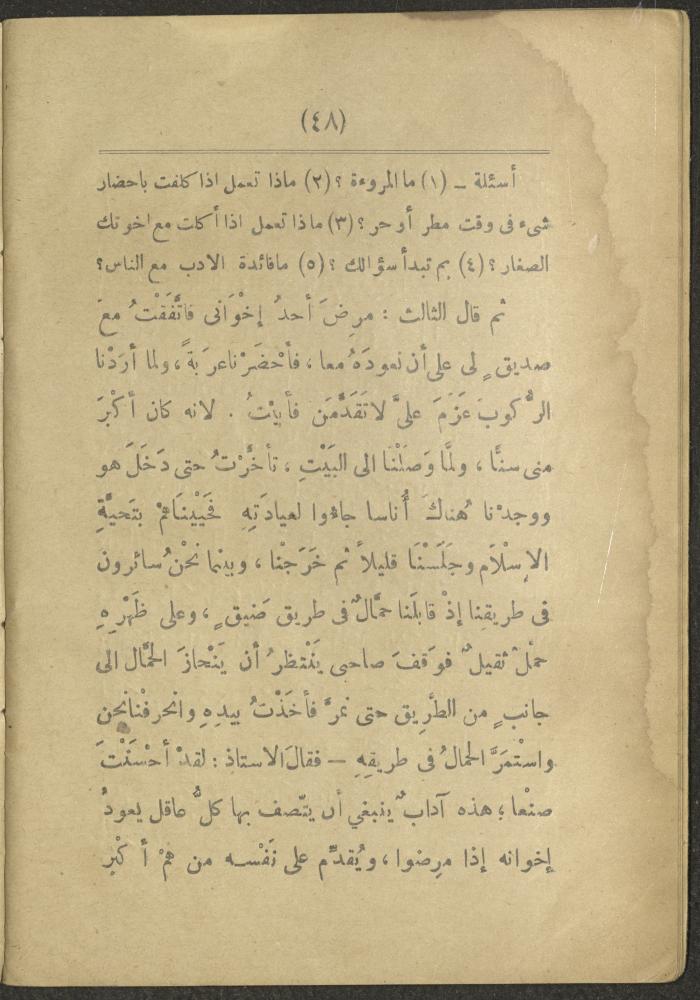 (٤٨)
أسئلة ـ (١) ما المروءة ؟ (٢) ماذا تعمل اذا كلفت باحضار
شىء فى وقت مطر أو حر ؟ (٣) ماذا تعمل اذا أكلت مع اخوتك
الصغار ؟ (٤) بم تبدأ سؤالك ؟ (٥) مافائدة الادب مع الناس ؟
ثم قال الثالث : مرِضَ أحدُ إخْوَانى فاتَّفَقْتُ معَ
صديقٍ لى على أن نعودَهُ معا ، فأحْضَرْنا عرَبةً ، ولما أرَدْنا
الرُّكوبَ عَزَمَ علىَّ لاتَقَدَّمَن فأبيْتُ . لانه كان أكْبرَ
منى سنًّا ، ولمَّا وَصَلْنَا الى البَيْتِ ، تأخَّرْتُ حتى دَخَلَ هو
ووجدْنا هُناكَ أُناسا جاءوا لعيادَتِهِ فَحَيَّيْنَاهُمْ بتَحيَّةِ
الإسْلاَمِ وجَلَسْنَا قليلاً ثم خَرَجْنا ، وبينما نحْنُ سائرون
فى طريقِنا إذْ قابلَنا حمَّالٌ فى طريق ضَيقٍ ، وعلى ظَهْرِهِ
حمْلٌ ثقيلٌ فوَقفَ صاحبى يَنْتظرُ أن يَنْحازَ الحَمَّال الى
جانبٍ من الطَّرِيق حتى نمرَّ فأخَذْتُ بيدِهِ وانحرفْنانحن
واسْتمَرَّ الحمالُ فى طريقِهِ — فقالَ الاستاذ : لقدْ أحْسَنْتَ
صنْعا ؛ هذه آدابٌ ينبغي أن يتّصف بها كلُّ عاقل يعودُ
إخوانه إذا مرِضوا ، ويُقدِّم على نَفْسه من همْ أكْبر